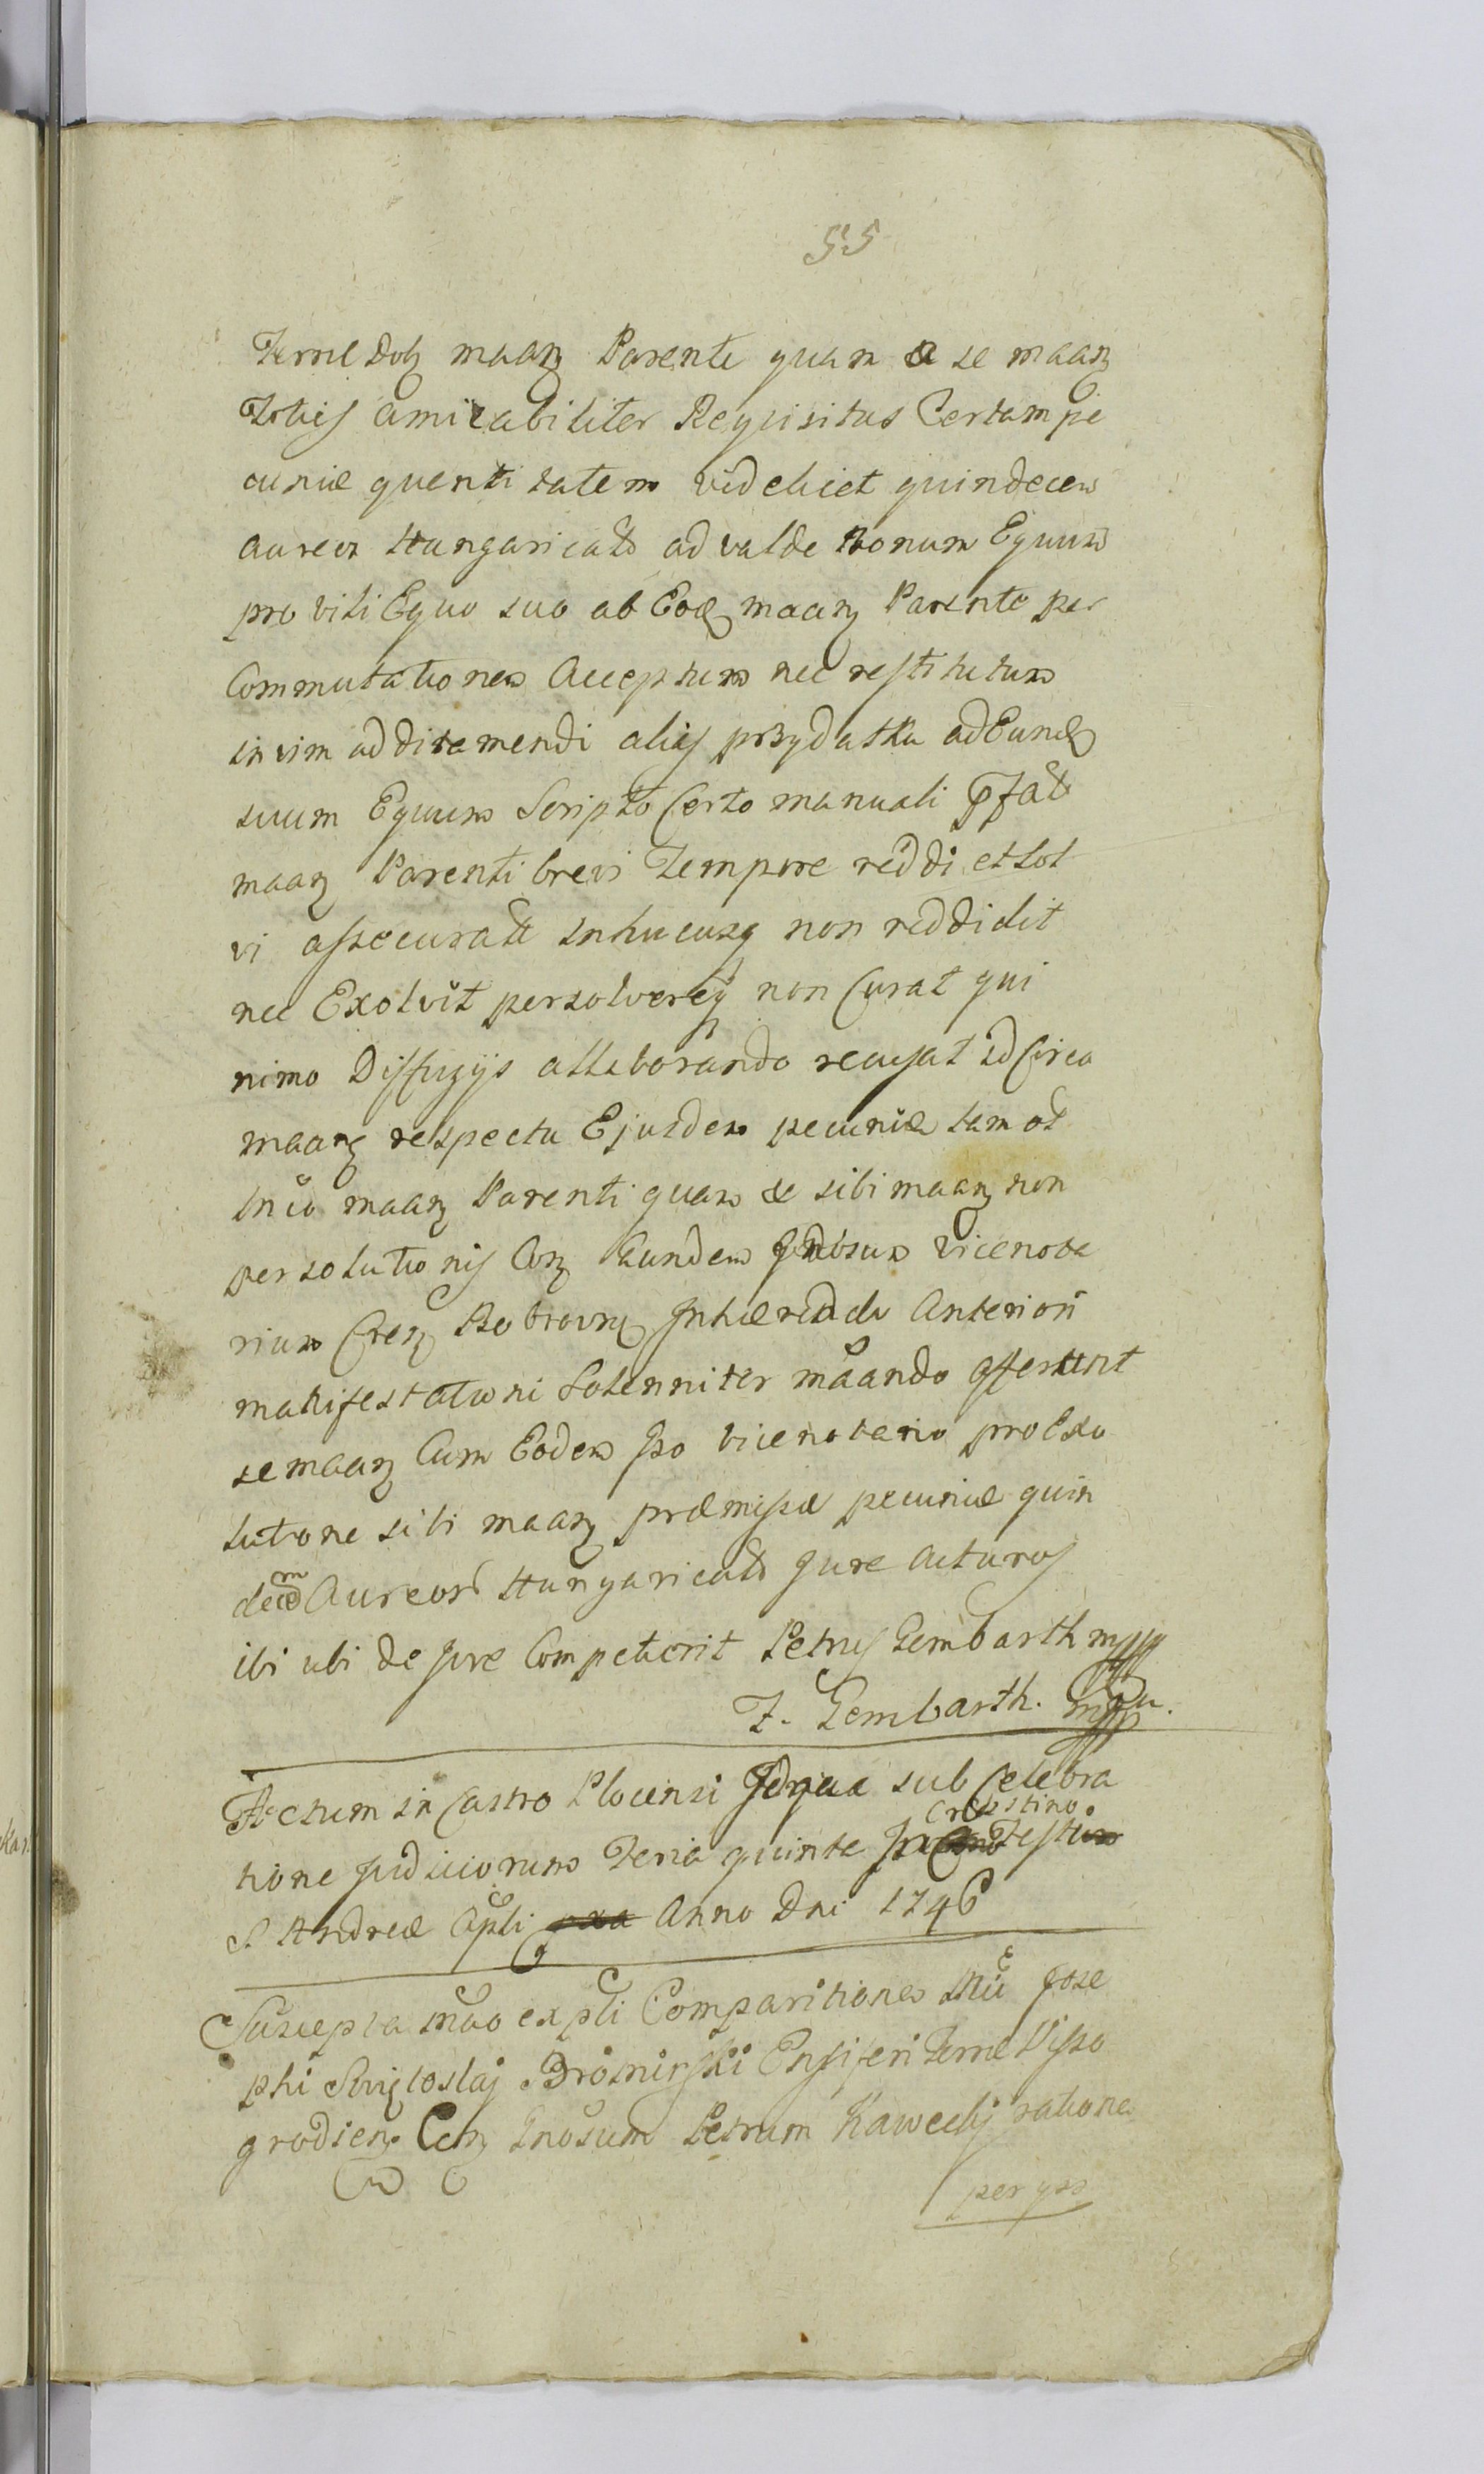 55
Terrae Dobz maanz Parente quam a se maanz
Toties amicabiliter Requisitus Certam pe
cuniae quantitatem videlicet quindecem
aureor Hungaricalo ad valde bonum Equum
pro vili Equo suo ab Eodz maanz Parente per
Commutationem Acceptum nec restitutum
in vim additamendi alias przydatku ad Eundz
suum Equum Scripto Certo manuali pfat
maanz Parenti brevi Tempore reddi et sol
vi assecurat inhucusq non reddidit
nec Exolvit persolvereq non Curat qui
nimo Diffugijs allaborando recusat id Circa
maanz respectu Ejusdem pecuniae tam ol
maanz Parenti quam & sibi maanz non
persolutionis Conz Eundem Gnosum Vicenota
rium Inhaerendo Anteriori
manifestationi Solenniter maando offerunt
se maanz Cum Eodem Gso vicenotario pro Exo
lutione sibi maanz praemissae pecuniae quin
decem Aureor Hungaricalo Jure Acturos
ibi ubi de Jure Competierit Petrus Gembarth mpp
F. Gembarth. mpp
Actum in Castro Plocensi Idque sub Celebra
tione Judiciorum Feria quinta Crastino Festum
S. Andreae Apli Anno Dni 1746
Suscepta mao expli Comparitionem Mci Jose
phi Swiętoslaj Brosnirski Ensiferi Terrae Visso
grodien. Ctrz Gnosum Petrum Kaweckj ratione